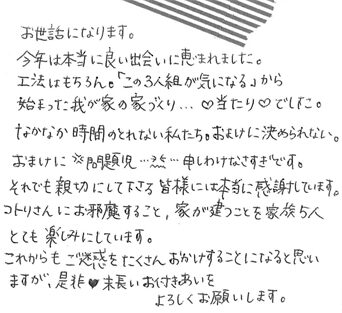 お世話になります。
今年は本当に良い出会いに恵まれました。
工法はもちろん。「この3人組が気になる」から
始まった我が家の家づくり…♡当たり♡でした。
なかなか時間のとれない私たち。おまけに決められない。
おまけに※問題児…※…申しわけなさすぎです。
それでも親切にして下さる皆様には本当に感謝しています。
コトリさんにお邪魔すること，家が建つことを家族5人
とても楽しみにしています。
これからもご迷惑をたくさんおかけすることになると思い
ますが、是非♥末長いお付きあいを
よろしくお願いします。